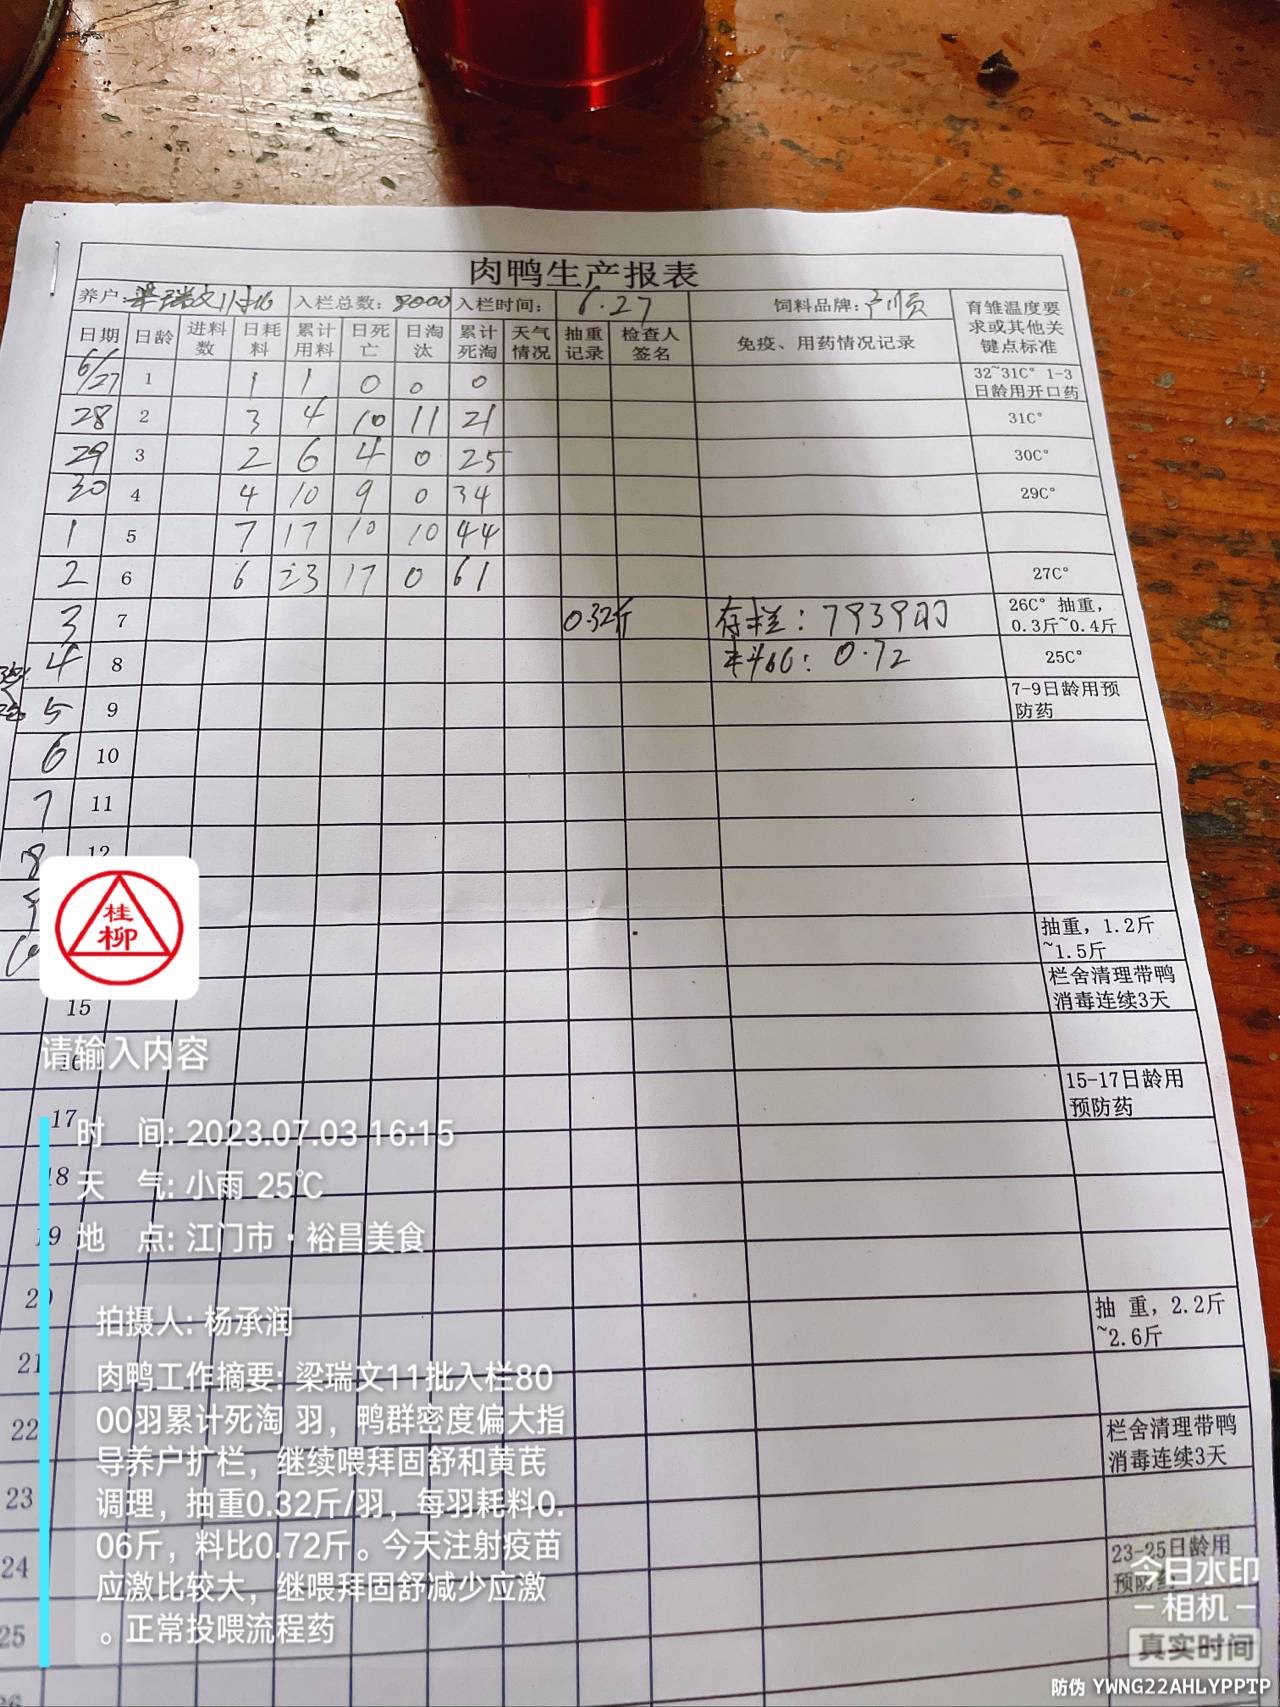 肉鸭生产报表
养户:梁瑞文11批 入栏总数:8000 入栏时间: 6.27 饲料品牌:广顺 育雏温度要求或其他关键点标准
日期 日龄 进料数 日耗料 累计用料 日死亡 日淘汰 累计死淘 天气情况 抽重记录 检查人签名 免疫、用药情况记录
6/27 1 1 1 0 0 0 32~31C° 1-3日龄用开口药
28 2 3 4 10 11 21 31C°
29 3 2 6 4 0 25 30C°
30 4 4 10 9 0 34 29C°
1 5 7 17 10 10 44
2 6 6 23 17 0 61 27C°
3 7 0.32斤 存栏:7939羽 26C° 抽重,0.3斤~0.4斤
4 8 料比:0.72 25C°
5 9 7-9日龄用预防药
6 10
7 11
8 12
抽重,1.2斤~1.5斤
15 栏舍清理带鸭消毒连续3天
16
17 15-17日龄用预防药
18
19
20
21 抽 重,2.2斤~2.6斤
22
23 栏舍清理带鸭消毒连续3天
24
25 23-25日龄用预防药
26
桂柳
请输入内容
时 间: 2023.07.03 16:15
天 气: 小雨 25℃
地 点: 江门市·裕昌美食
拍摄人: 杨承润
肉鸭工作摘要: 梁瑞文11批入栏80
00羽累计死淘 羽，鸭群密度偏大指
导养户扩栏，继续喂拜固舒和黄芪
调理，抽重0.32斤/羽，每羽耗料0.
06斤，料比0.72斤。今天注射疫苗
应激比较大，继喂拜固舒减少应激
。正常投喂流程药
今日水印
相机
真实时间
防伪 YWNG22AHLYPPTP